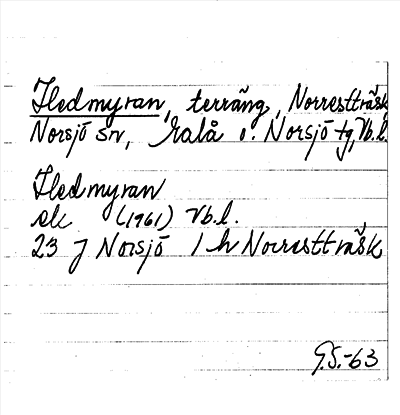 Hedmyran, terräng, Norrestträsk
Norsjö sn, Malå o. Norsjö tg, Vb.l.
Hedmyran
ek (1961) Vb.l.
23 J Norsjö 1 h Norrestträsk
G.S.-63